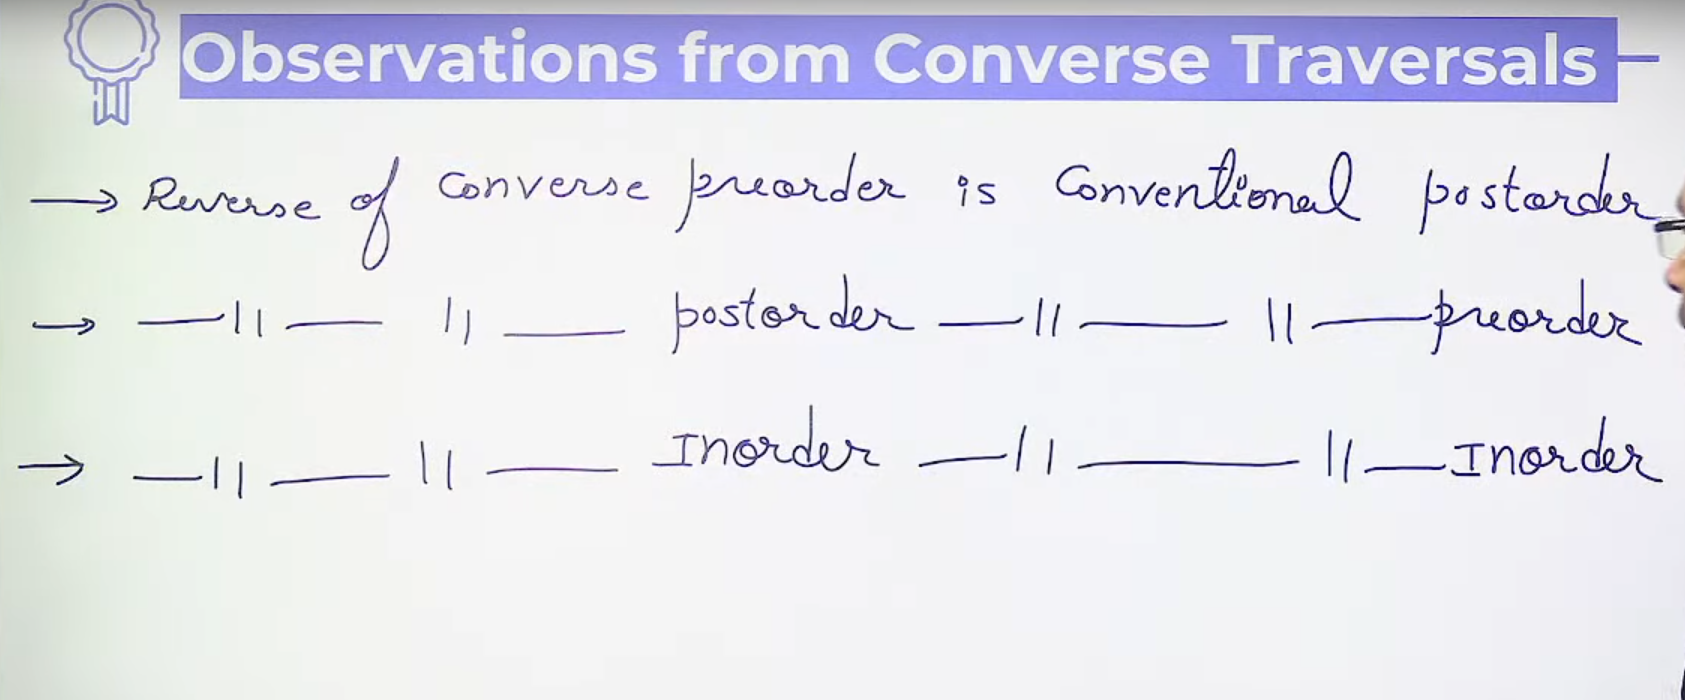 Observations from Converse Traversals
→ Reverse of converse preorder is Conventional postorder
→ —||— || — postorder —||— || — preorder
→ —||— || — Inorder —||— || — Inorder